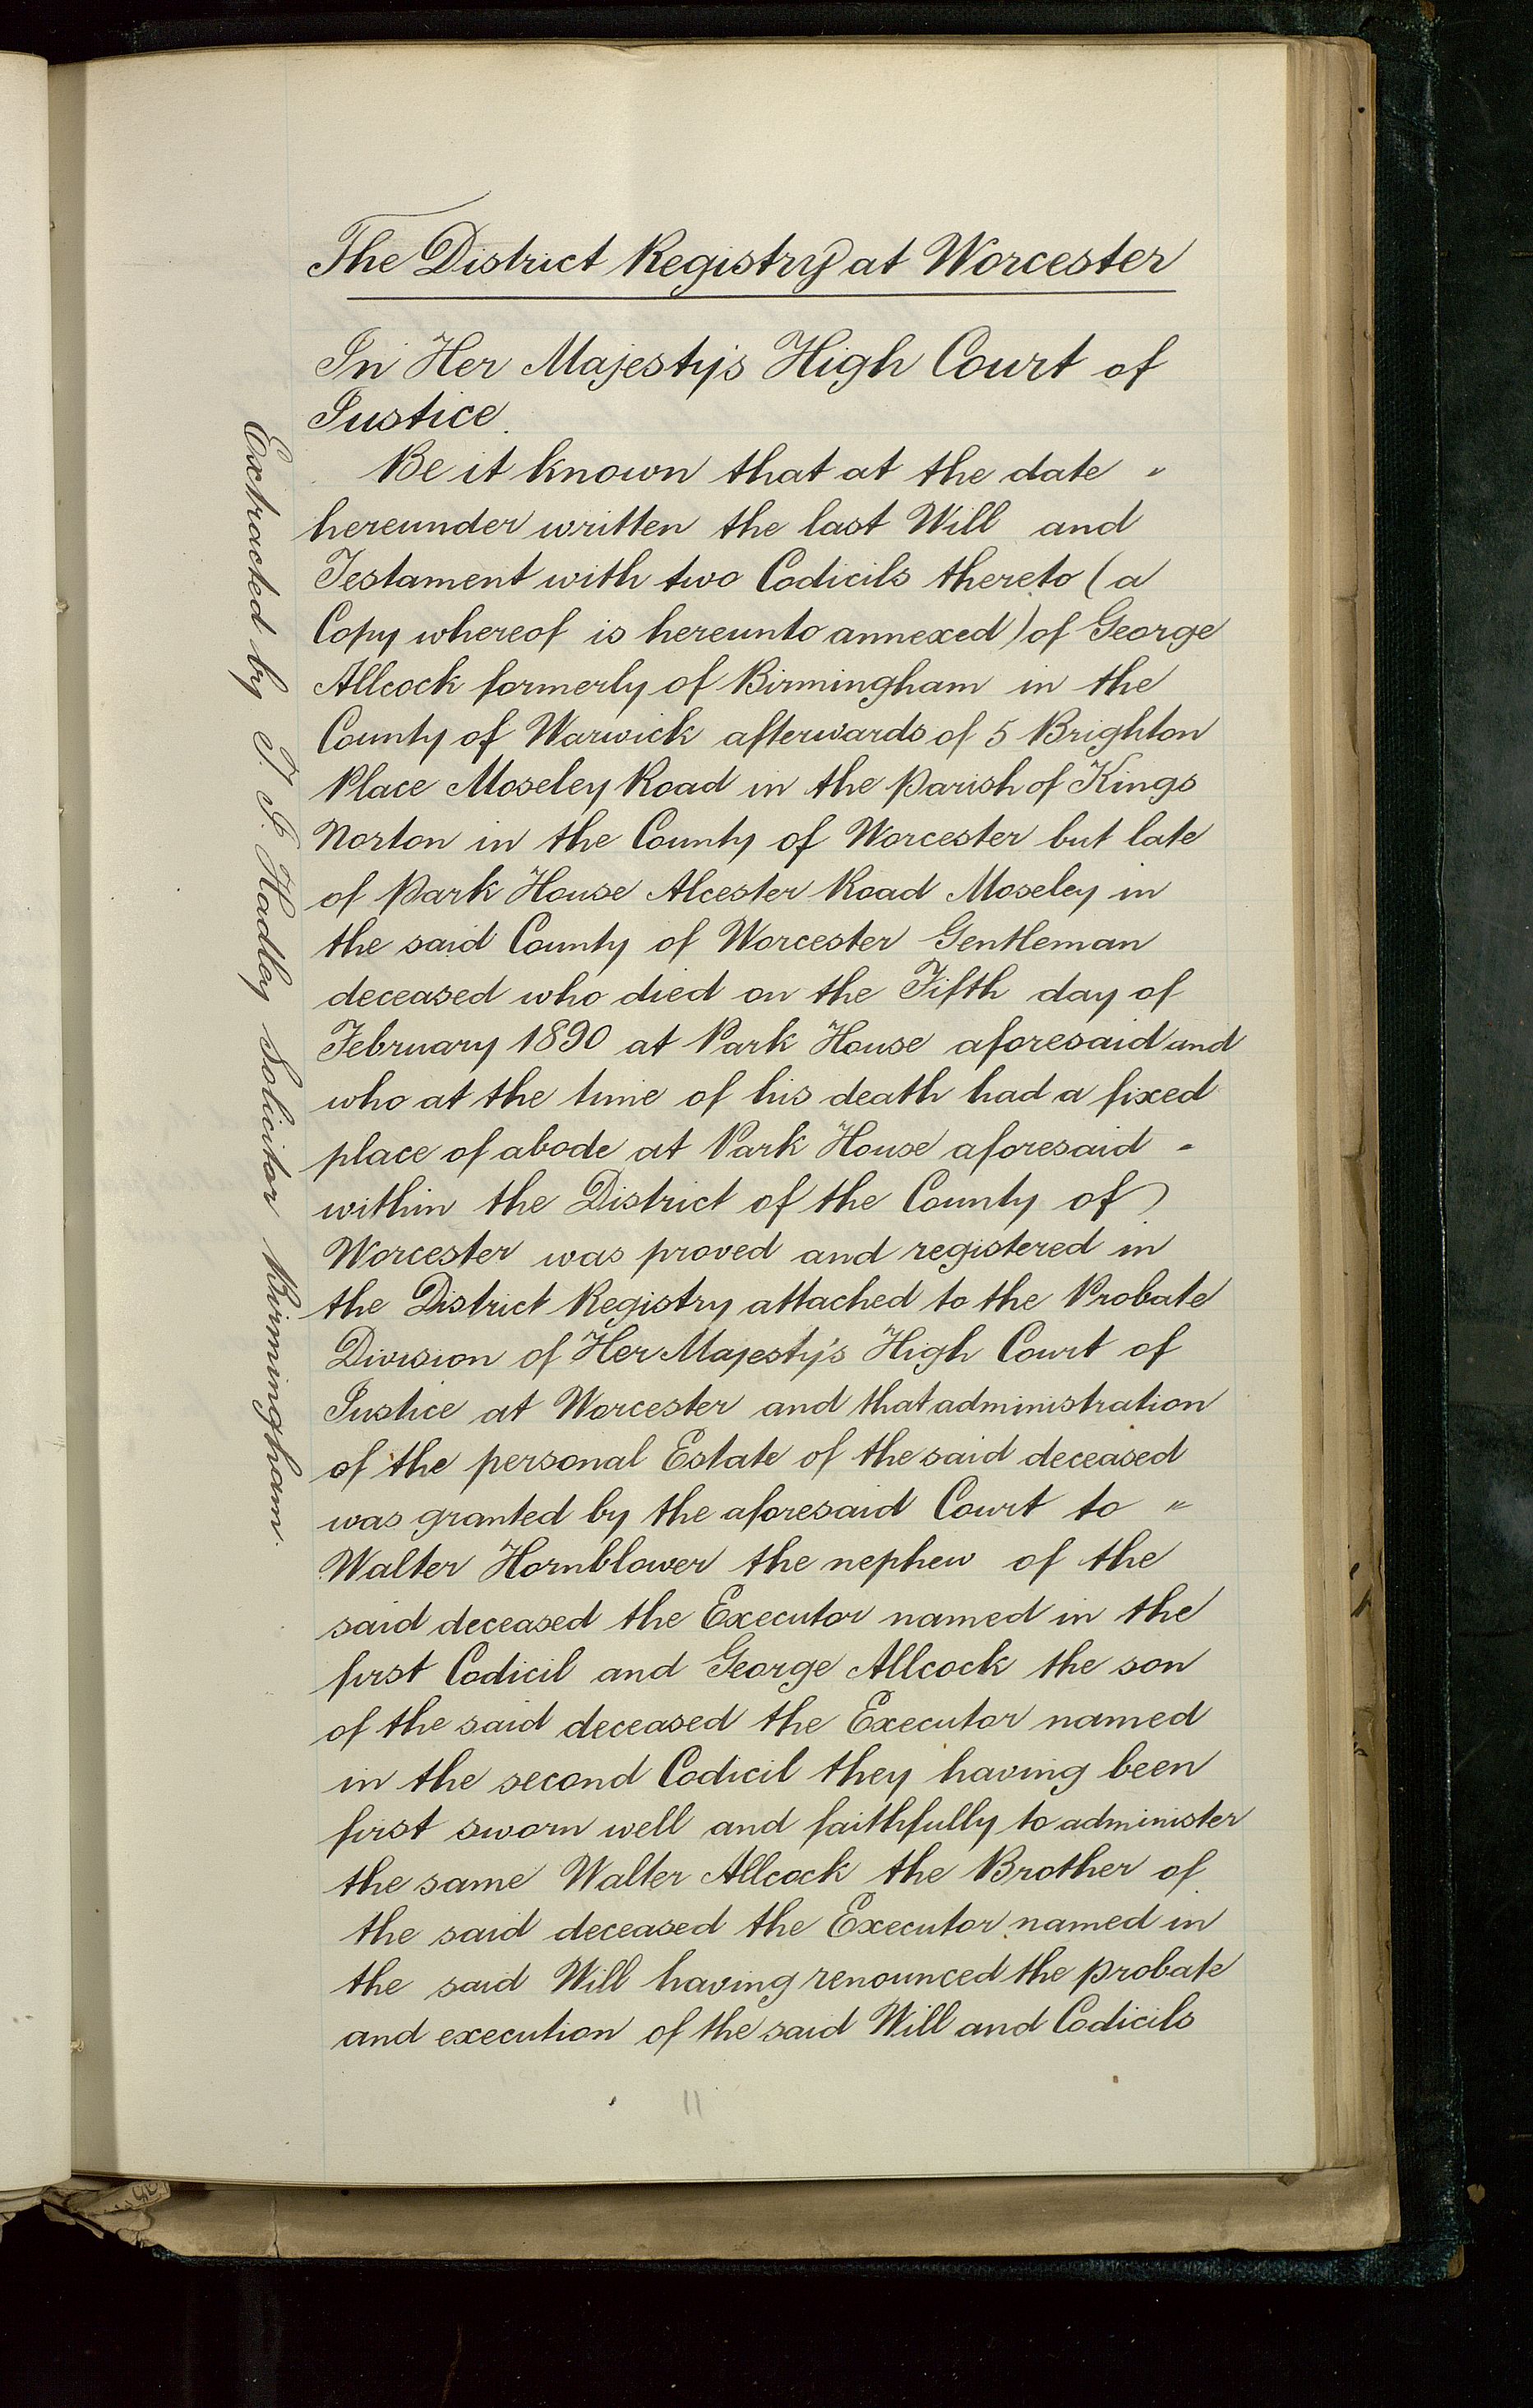 The District Registry at Worcester
In Her Majesty's High Court of
Justice.
Be it known that at the date "
hereunder written the last Will and
Testament with two Codicils thereto (a
Copy whereof is hereunto annexed) of George
Allcock formerly of Birmingham in the
County of Warwick afterwards of 5 Brighton
Place Moseley Road in the Parish of Kings
Norton in the County of Worcester but late
of Park House Alcester Road Moseley in
the said County of Worcester Gentleman
deceased who died on the Fifth day of
February 1890 at Park House aforesaid and
who at the time of his death had a fixed
place of abode at Park House aforesaid -
within the District of the County of
Worcester was proved and registered in
the District Registry attached to the Probate
Division of Her Majesty's High Court of
Justice at Worcester and that administration
of the personal Estate of the said deceased
was granted by the aforesaid Court to "
Walter Hornblower the nephew of the
said deceased the Executor named in the
first Codicil and George Allcock the son
of the said deceased the Executor named
in the second Codicil they having been
first sworn well and faithfully to administer
the same Walter Allcock the Brother of
the said deceased the Executor named in
the said Will having renounced the probate
and execution of the said Will and Codicils
11
Extracted by J. J. Hadley Solicitor Birmingham.